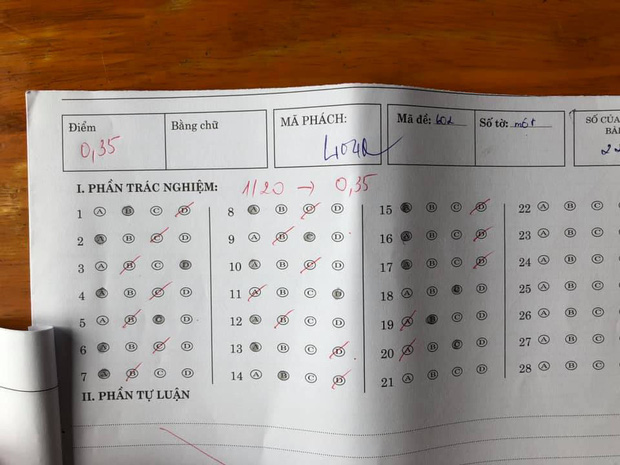 Điểm
Bằng chữ
MÃ PHÁCH:
Mã đề: 402
Số tờ: một
SỐ CỦA
BÀI
0,35
4042
22
I. PHẦN TRẮC NGHIỆM: 1/20 → 0,35
1 A B C D 8 A B C D 15 A B C D 22 A B C
2 A B C D 9 A B C D 16 A B C D 23 A B C
3 A B C D 10 A B C D 17 A B C D 24 A B C
4 A B C D 11 A B C D 18 A B C D 25 A B C
5 A B C D 12 A B C D 19 A B C D 26 A B C
6 A B C D 13 A B C D 20 A B C D 27 A B C
7 A B C D 14 A B C D 21 A B C D 28 A B C
II. PHẦN TỰ LUẬN